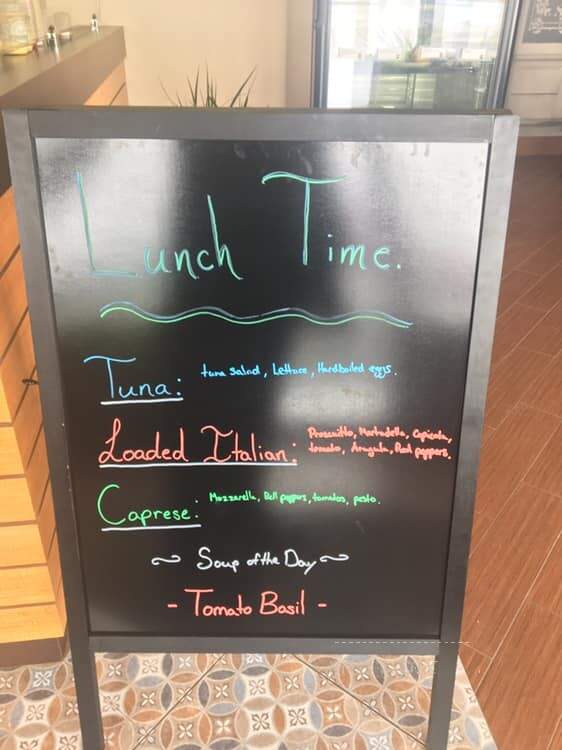 Lunch Time.
Tuna: tuna salad, Lettuce, Hardboiled eggs.
Loaded Italian: Proscuitto, Mortadella, Capicola,
tomato, Arugula, Red peppers.
Caprese: Mozzarella, Bell peppers, tomatoes, pesto.
~ Soup of the Day ~
- Tomato Basil -